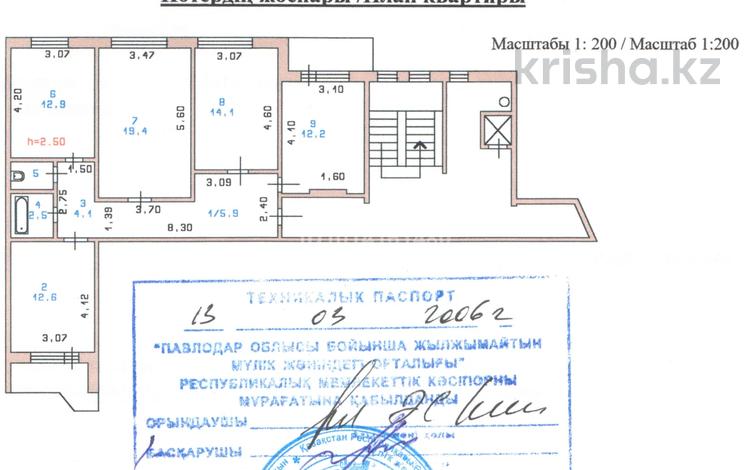 Пәтердің жоспары /План квартиры
Масштабы 1: 200 / Масштаб 1:200
krisha.kz
3,07
3,47
3,07
3,10
4,20
6
12.9
h=2.50
7
19.4
5,60
8
14.1
4,60
4,10
9
12.2
1,60
5
1,50
3,09
4
2.5
2,75
3
4.1
1,39
3,70
8,30
1/5.9
2,40
2
12.6
4,12
3,07
ТЕХНИКАЛЫҚ ПАСПОРТ
13 03 2006 г
"ПАВЛОДАР ОБЛЫСЫ БОЙЫНША ЖЫЛЖЫМАЙТЫН
МҮЛІК ЖӨНІНДЕГІ ОРТАЛЫҒЫ"
РЕСПУБЛИКАЛЫҚ МЕМЛЕКЕТТІК КӘСІПОРНЫ
МҰРАҒАТЫНА ҚАБЫЛДАНДЫ
ОРЫНДАУШЫ
БАСҚАРУШЫ
Қазақстан Респуб